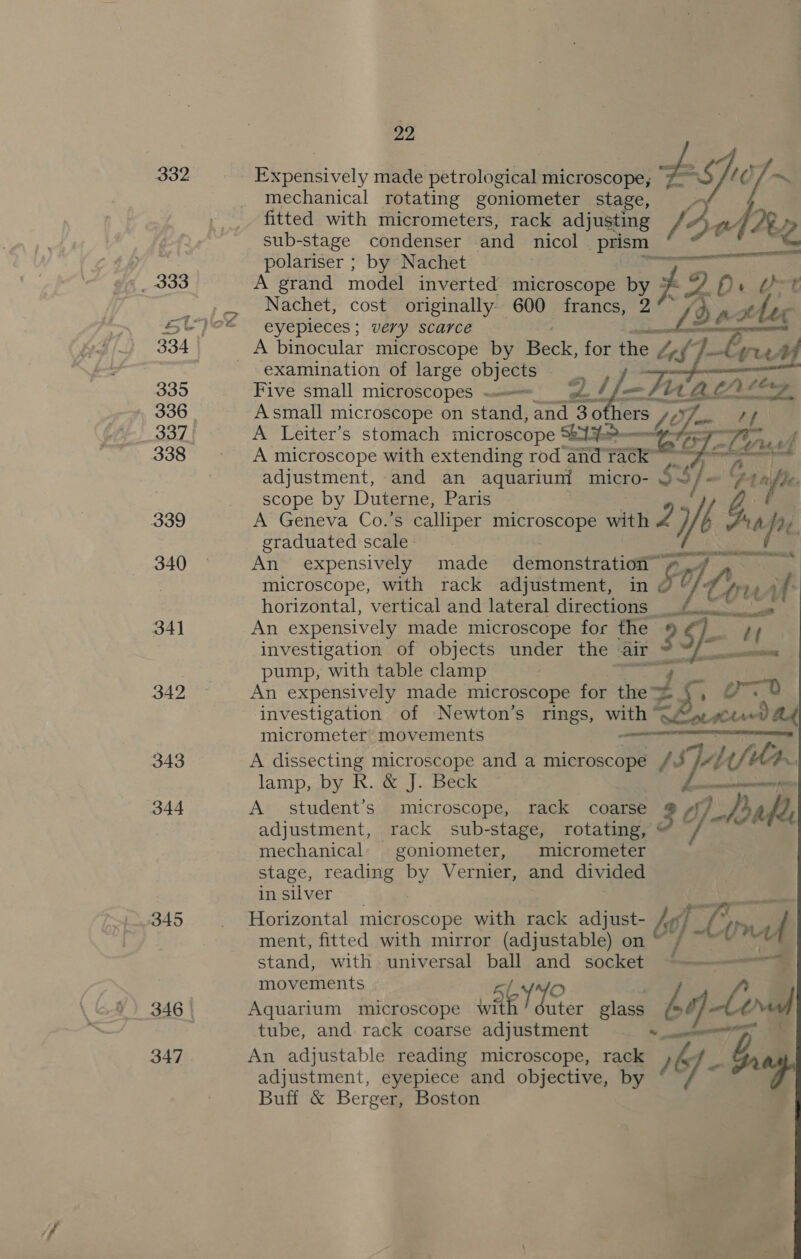 22
332 Expensively made petrological microscope,
mechanical rotating goniometer stage,
fitted with micrometers, rack adjusting
sub-stage condenser and nicol prism
polariser ; by Nachet
333 A grand model inverted microscope by
Nachet, cost originally 600 francs, 2
eyepieces ; very scarce
334 A binocular microscope by Beck, for the
examination of large objects
335 Five small microscopes
336 A small microscope on stand, and 3 others
337 A Leiter's stomach microscope
338 A microscope with extending rod and rack
adjustment, and an aquarium micro-
scope by Duterne, Paris
339 A Geneva Co.'s calliper microscope with
graduated scale
340 An expensively made demonstration
microscope, with rack adjustment, in
horizontal, vertical and lateral directions
341 An expensively made microscope for the
investigation of objects under the air
pump, with table clamp
342 An expensively made microscope for the
investigation of Newton's rings, with
micrometer movements
343 A dissecting microscope and a microscope
lamp, by R. & J. Beck
344 A student's microscope, rack coarse
adjustment, rack sub-stage, rotating,
mechanical goniometer, micrometer
stage, reading by Vernier, and divided
in silver
345 Horizontal microscope with rack adjust-
ment, fitted with mirror (adjustable) on
stand, with universal ball and socket
movements
346 Aquarium microscope with outer glass
tube, and rack coarse adjustment
347 An adjustable reading microscope, rack
adjustment, eyepiece and objective, by
Buff & Berger, Boston